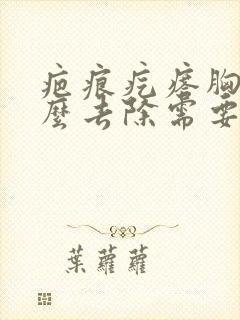 疤痕疙瘩胸
麼去除需要
葉蘿蘿